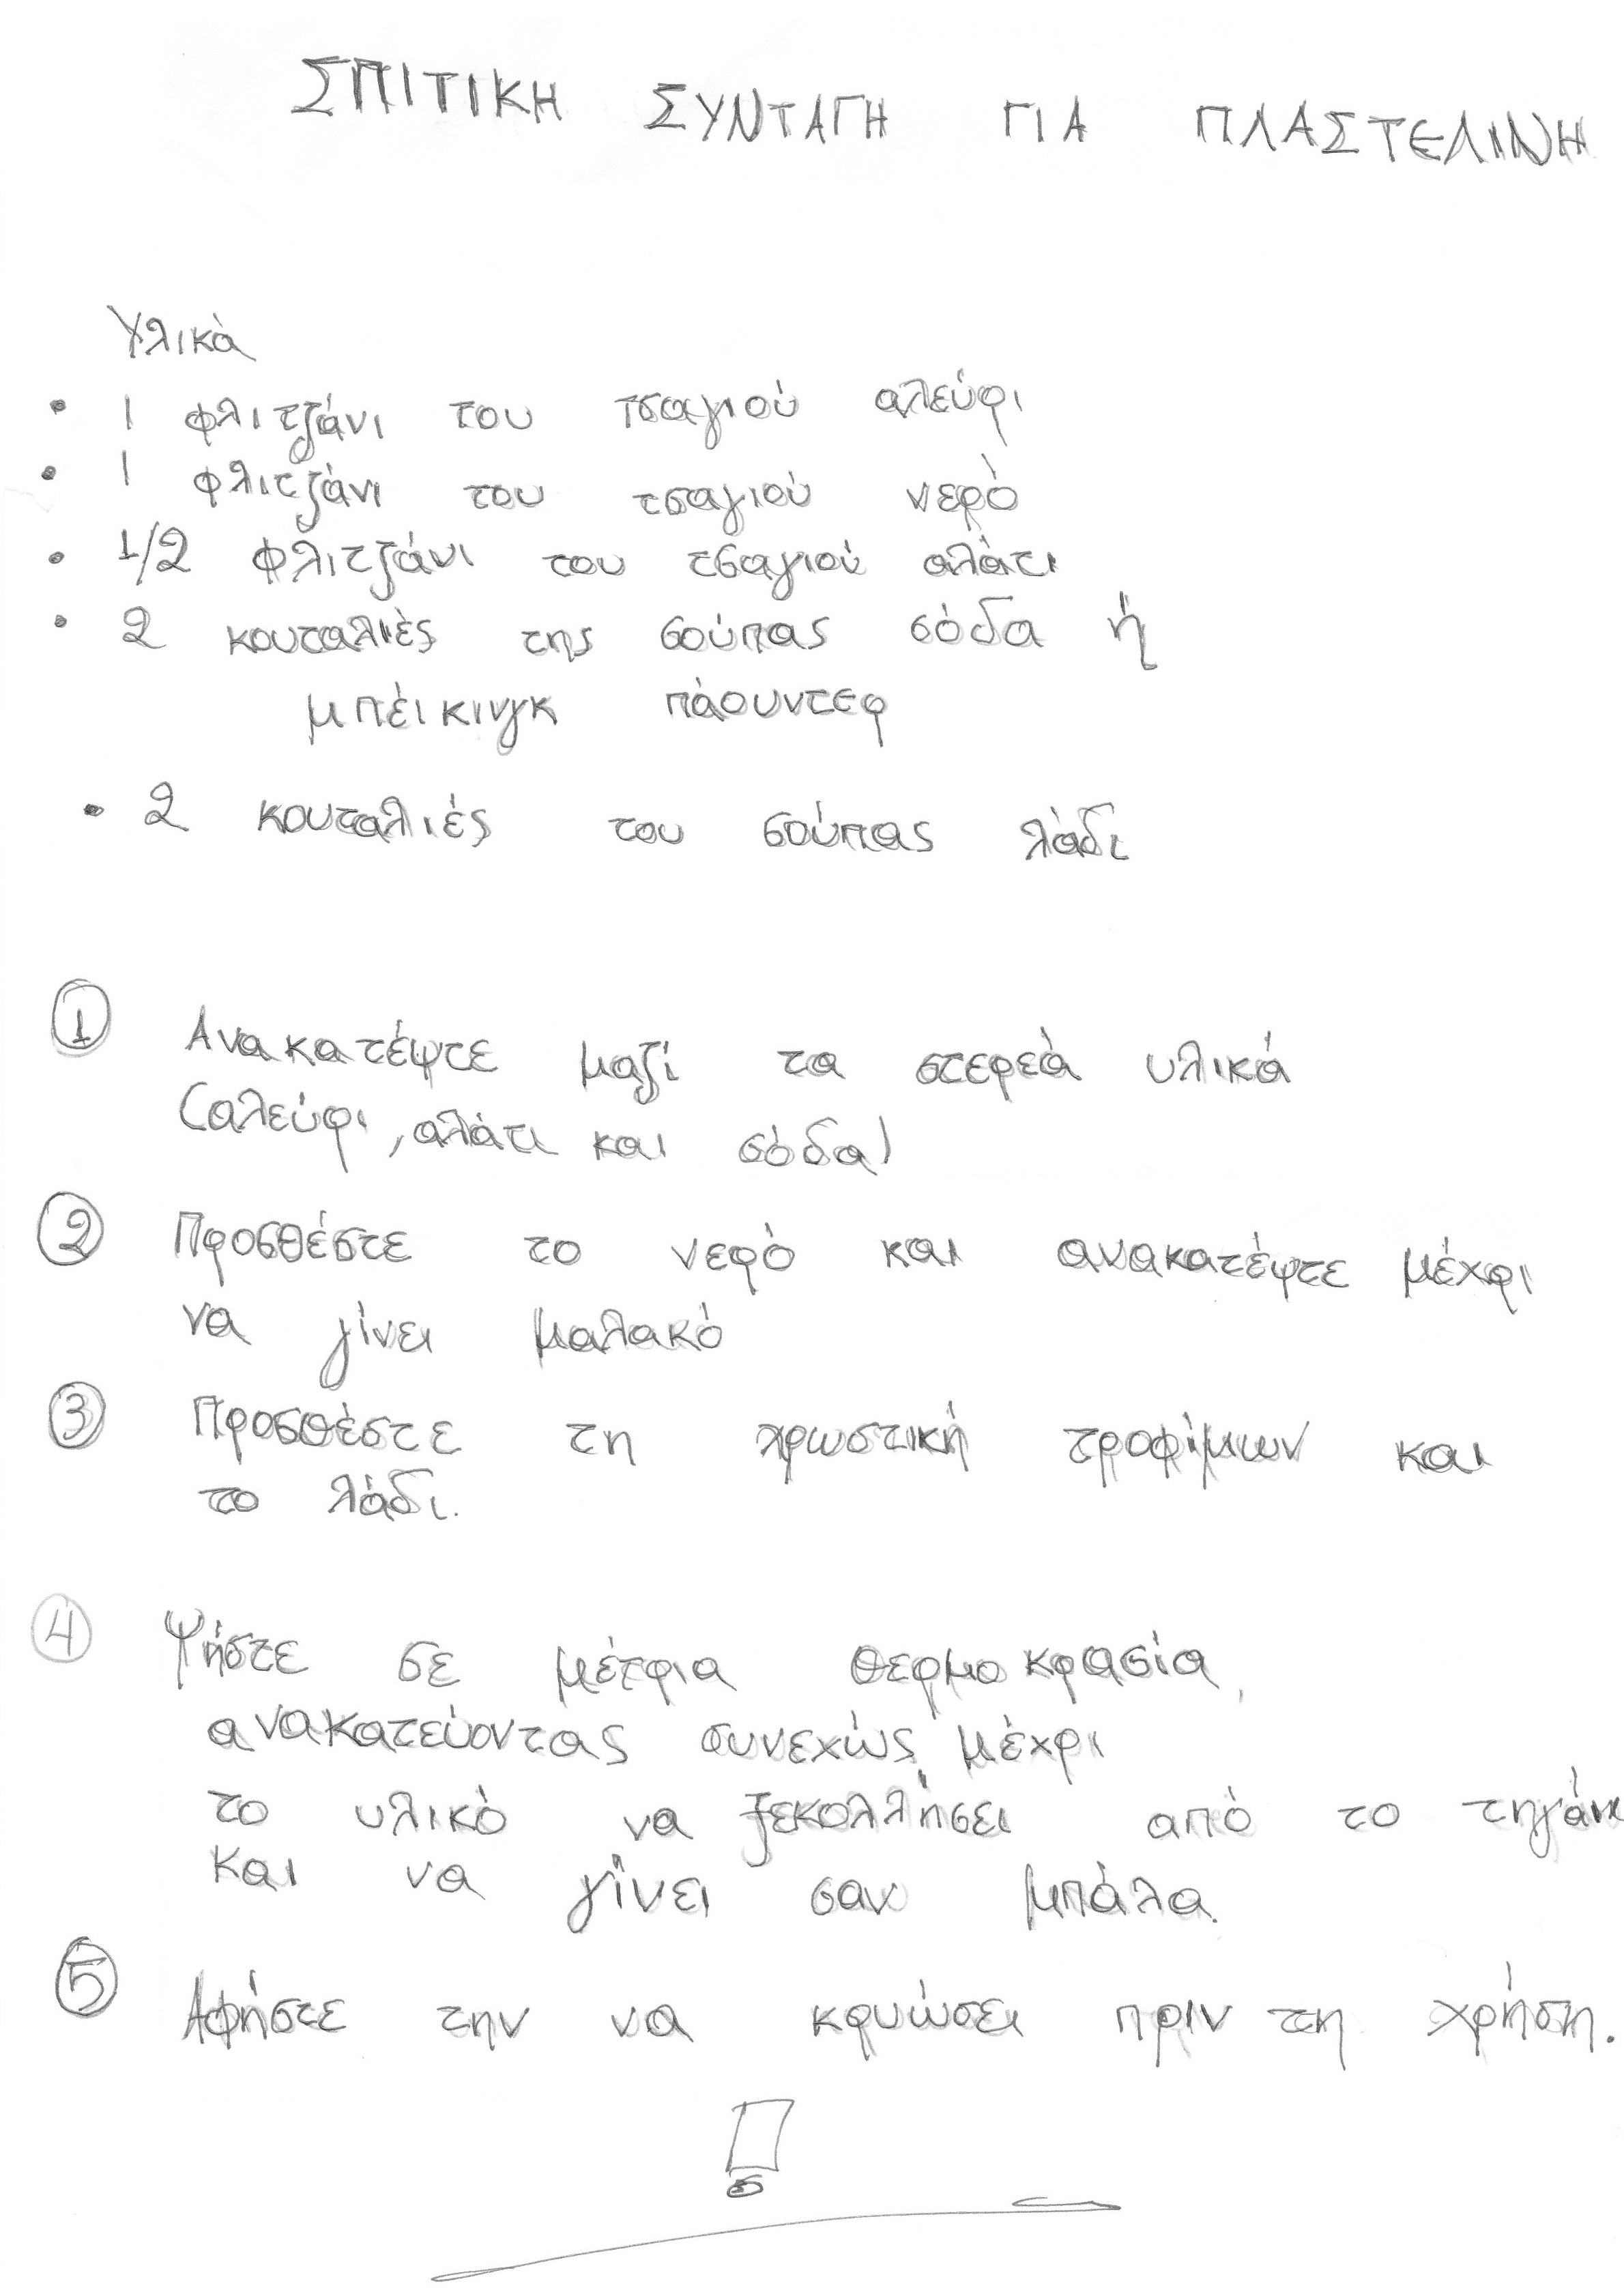 ΣΠΙΤΙΚΗ ΣΥΝΤΑΓΗ ΓΙΑ ΠΛΑΣΤΕΛΙΝΗ
Υλικά
• 1 φλιτζάνι του τσαγιού αλεύρι
• 1 φλιτζάνι του τσαγιού νερό
• 1/2 φλιτζάνι του τσαγιού αλάτι
• 2 κουταλιές της σούπας σόδα ή
μπέικινγκ πάουντερ
• 2 κουταλιές του σούπας λάδι
1 Ανακατέψτε μαζί τα στερεά υλικά
(αλεύρι, αλάτι και σόδα)
2 Προσθέστε το νερό και ανακατέψτε μέχρι
να γίνει μαλακό
3 Προσθέστε τη χρωστική τροφίμων και
το λάδι.
4 Ψήστε σε μέτρια θερμοκρασία,
ανακατεύοντας συνεχώς μέχρι
το υλικό να ξεκολλήσει από το τηγάνι
και να γίνει σαν μπάλα.
5 Αφήστε την να κρυώσει πριν τη χρήση.